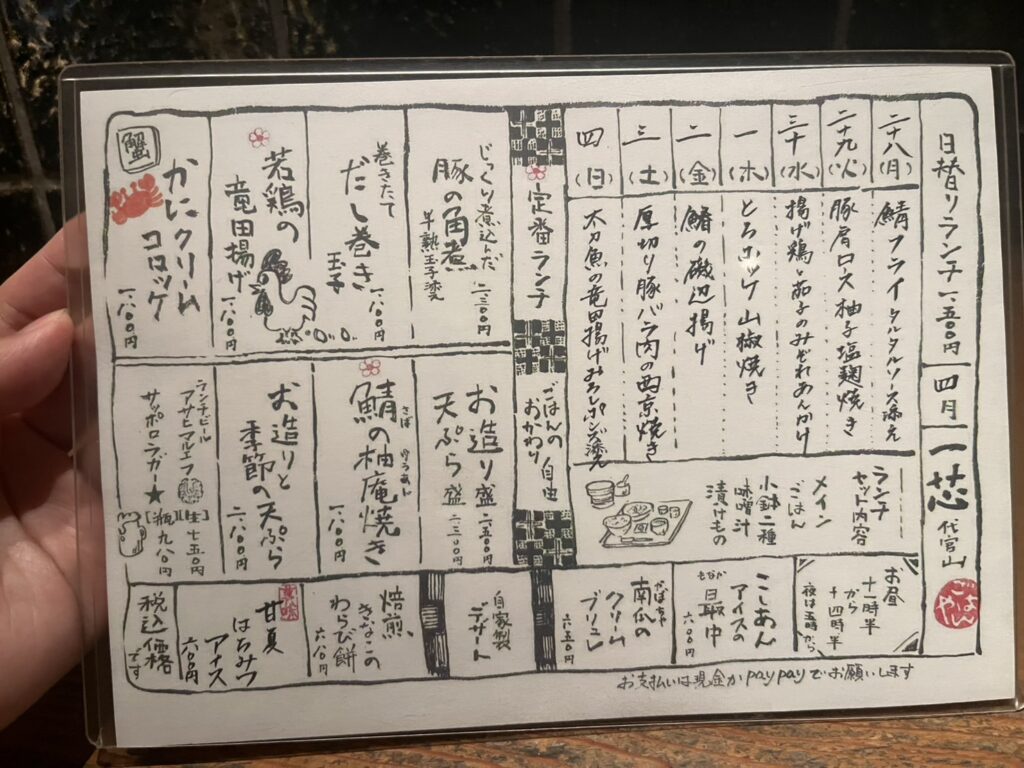 日替りランチ 一.五〇〇円
四月
一芯 代官山
ごはんや
二十八(月) 鯖フライ タルタルソース添え
二十九(火) 豚肩ロス 柚子塩麹焼き
三十(水) 揚げ鶏と茄子のみぞれあんかけ
一(木) とろホッケ山椒焼き
二(金) 鰆の磯辺揚げ
三(土) 厚切り豚バラ肉の西京焼き
四(日) 太刀魚の竜田揚げみぞれポンズ添え
ランチ
セット内容
メイン
ごはん
小鉢二種
味噌汁
漬けもの
お昼
十一時半
から
十四時半
夜は五時から
定番ランチ
ごはんの
おかわり
自由
じっくり煮込んだ
豚の角煮
半熟玉子
二.三〇〇円
巻きたて
だし巻き
玉子
一.八〇〇円
若鶏の
竜田揚げ
一.八〇〇円
蟹
かにクリーム
コロッケ
一.八〇〇円
お造り盛 二.五〇〇円
天ぷら盛 二.三〇〇円
さば ゆうあん
鯖の柚庵焼き
一.八〇〇円
お造りと
季節の天ぷら
二.八〇〇円
ランチビール
アサヒマルエフ [生] 七五〇円
サッポロラガー★ [瓶] 九八〇円
自家製
デザート
こしあん
アイスの
もなか
最中
六〇〇円
かぼちゃ
南瓜の
クリーム
ブリュレ
六五〇円
焙煎
きなこの
わらび餅
六八〇円
甘夏
はちみつ
アイス
六〇〇円
税込価格
です
お支払いは現金かpaypayでお願いします